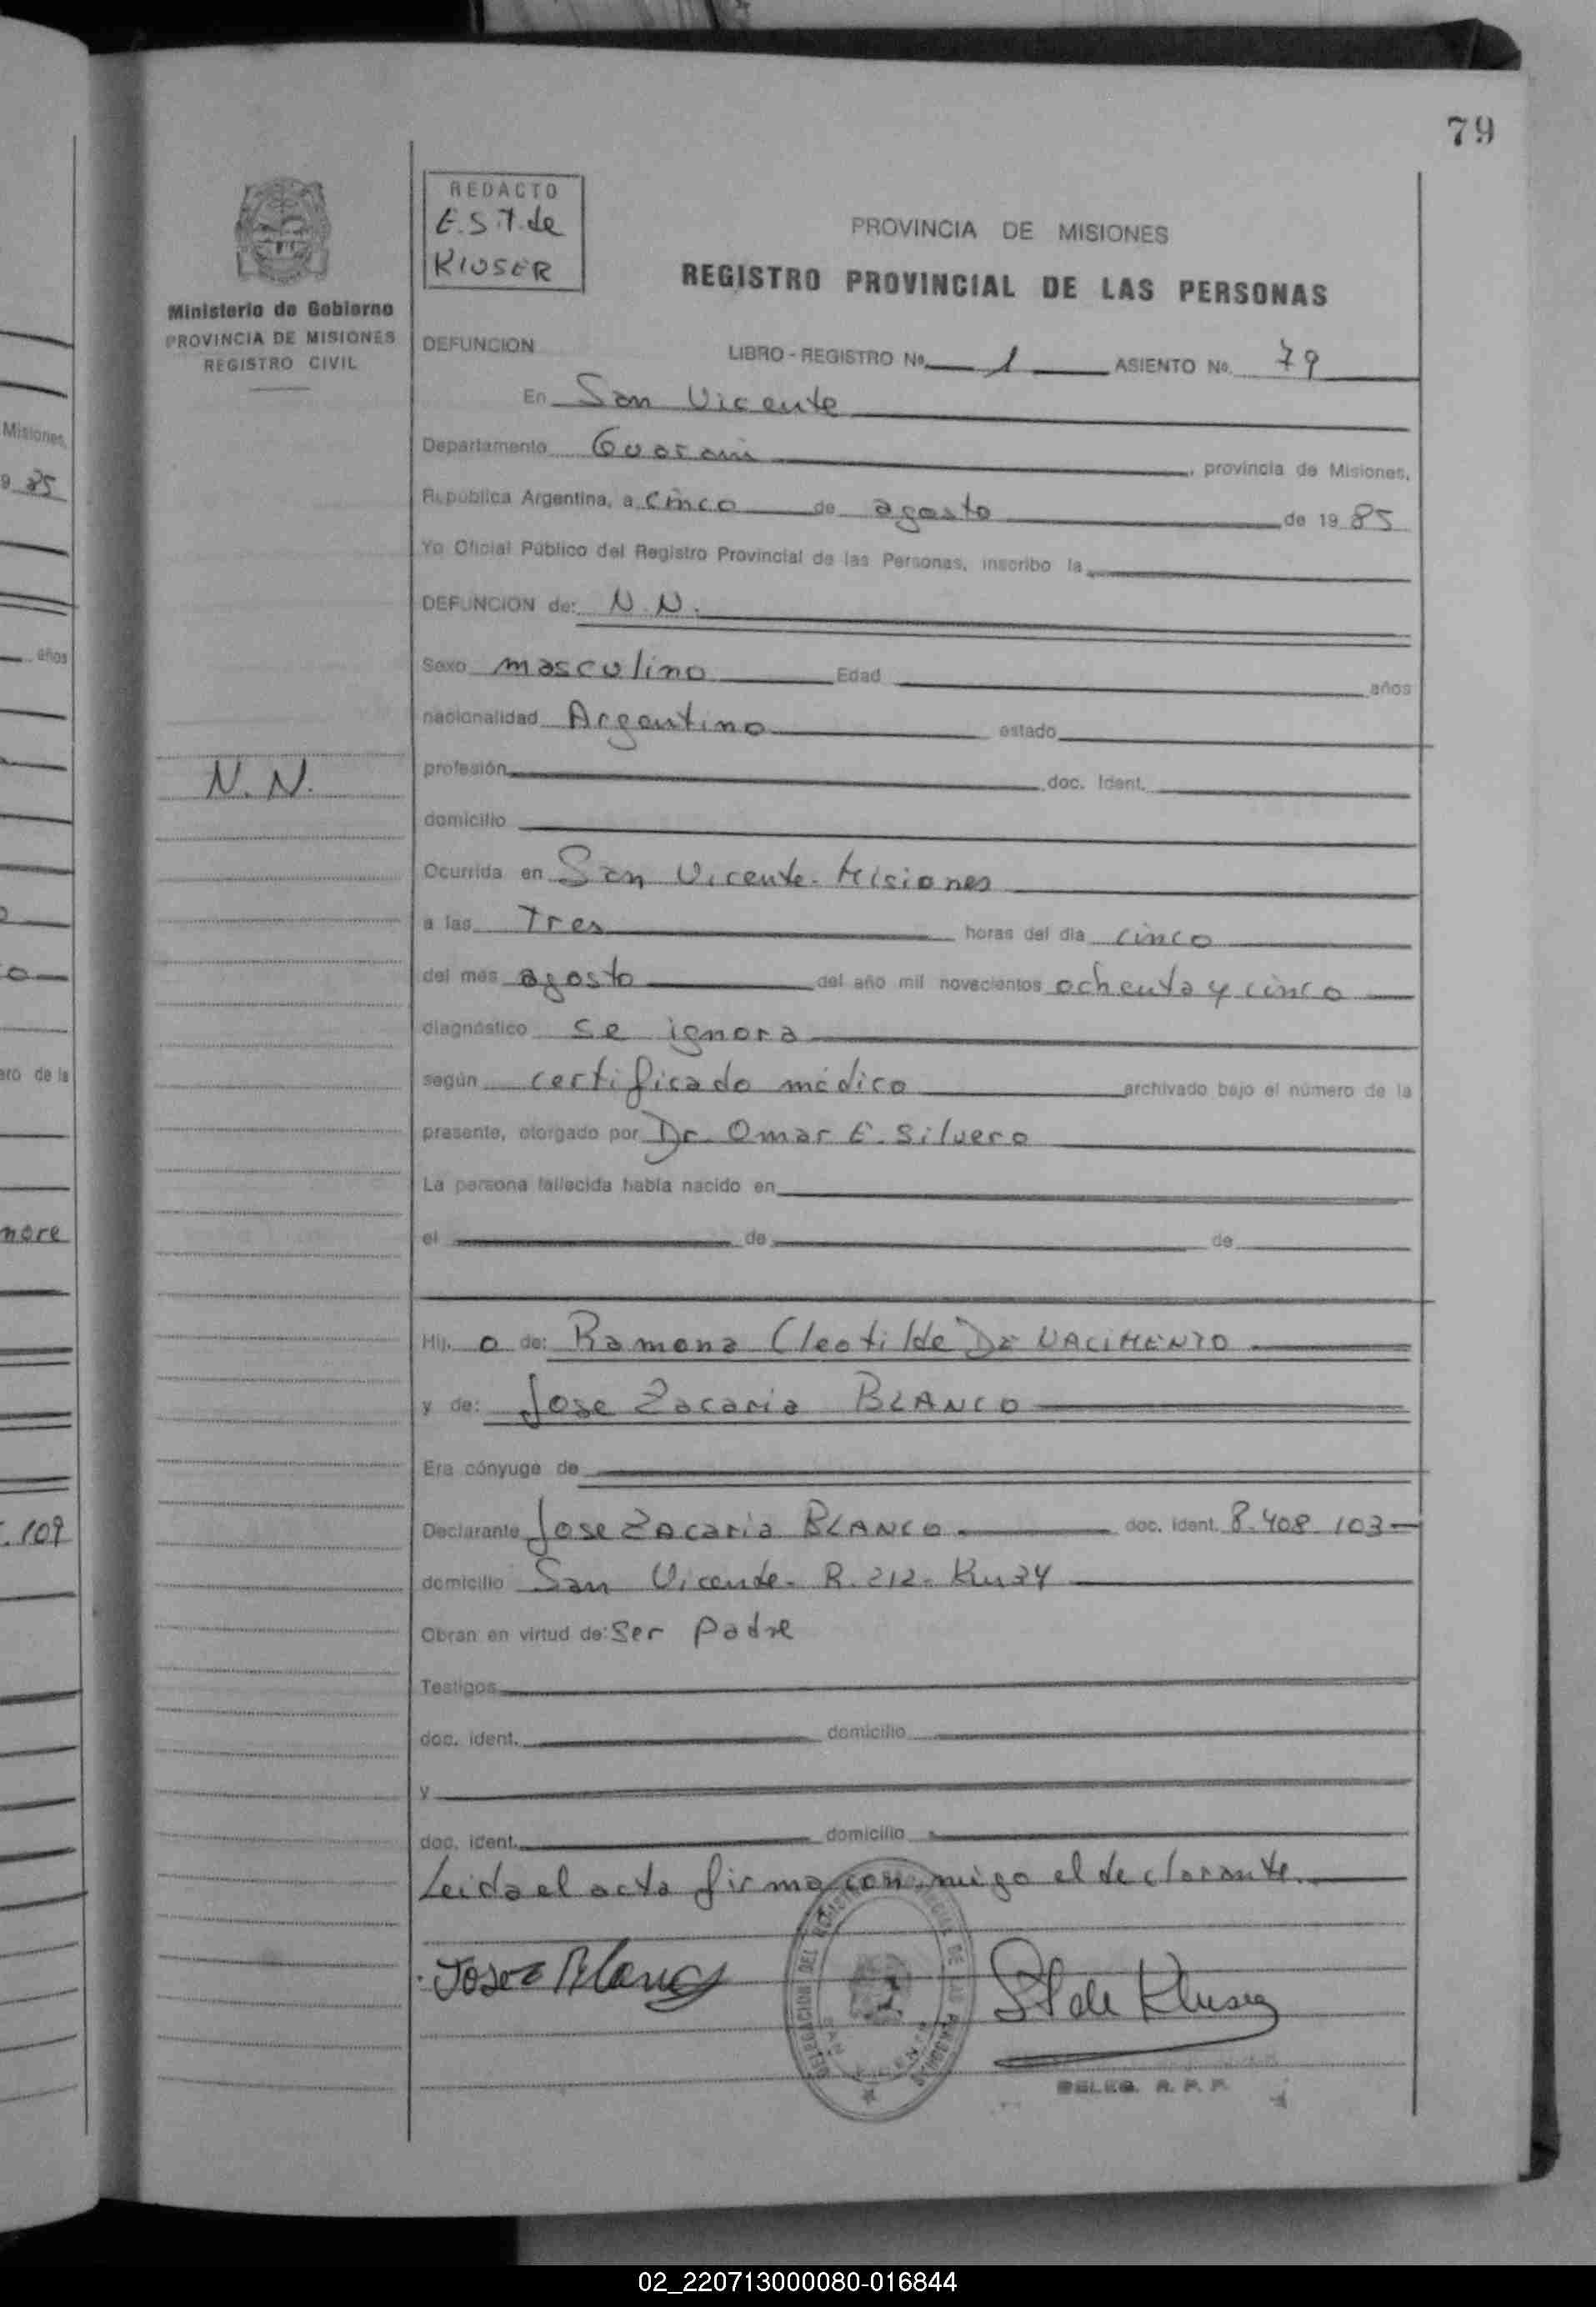 79
REDACTO
E.S.T. de
KLUSER
PROVINCIA DE MISIONES
REGISTRO PROVINCIAL DE LAS PERSONAS
Ministerio de Gobierno
PROVINCIA DE MISIONES
REGISTRO CIVIL
DEFUNCION LIBRO - REGISTRO No. 1 ASIENTO No. 79
En San Vicente
Departamento Guarani, provincia de Misiones,
República Argentina, a cinco de agosto de 1985
Yo Oficial Público del Registro Provincial de las Personas, inscribo la
DEFUNCION de: N.N.
Sexo masculino Edad años
nacionalidad Argentino estado
N.N.
profesión doc. Ident.
domicilio
Ocurrida en San Vicente - Misiones
a las Tres horas del día cinco
del mes agosto del año mil novecientos ochenta y cinco
diagnóstico se ignora
según certificado médico archivado bajo el número de la
presente, otorgado por Dr. Omar E. Silvero
La persona fallecida había nacido en
el de de
Hij o de: Ramona Cleotilde DE NACIMENTO
y de: Jose Zacaria BLANCO
Era cónyuge de
Declarante Jose Zacaria BLANCO doc. ident. 8.408.103
domicilio San Vicente - R. 212 - Km 34
Obran en virtud de: Ser Padre
Testigos
doc. ident. domicilio
y
doc. ident. domicilio
Leida el acta firma conmigo el declarante.
Jose Z Blanco
DELEGACION DEL REGISTRO PROVINCIAL DE LAS PERSONAS
SAN VICENTE
ST de Kluser
DELEG. R. P. P.
Misiones,
9 85
años
ero de la
nore
.109
02_220713000080-016844